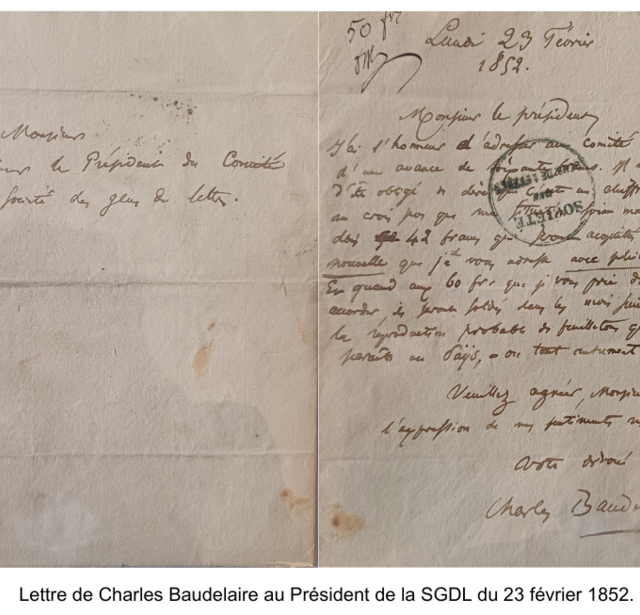 Monsieur
le Président du Comité
Société des gens de lettres.
50 frs
Lundi 23 Février
1852.
Monsieur le président,
J'ai l'honneur d'adresser au comité
d'une avance de soixante francs. Il
d'être obligé de
au crois pas que
des 42 francs qui seront acquittés
nouvelle que je vous adresse avec
Et quand aux 60 frs que je vous prie
accorder, ils seront soldés dans les mois
la reproduction probable de feuilletons
paraître au Pays, ou tout autrement
Veuillez agréer, Monsieur
l'expression de mes sentiments
votre dévoué
Charles Baud
SOCIÉTÉ
DES
GENS DE LETTRES
Lettre de Charles Baudelaire au Président de la SGDL du 23 février 1852.